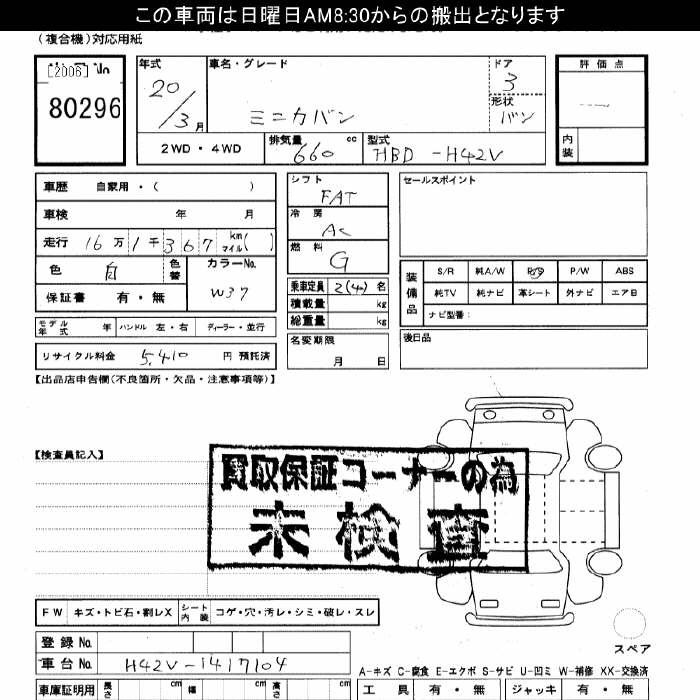 この車両は日曜日AM8:30からの搬出となります
(複合機)対応用紙
[2006]
80296
年式
20/3月
車名・グレード
ミニカバン
ドア
3
形状
バン
評価点
内装
2WD・4WD
排気量
660 cc
型式
HBD-H42V
車歴 自家用・( )
車検 年 月
走行 16万1千367 km マイル( )
色 白
色替
カラーNo.
W37
保証書 有・無
モデル年式 年 ハンドル 左・右 ディーラー・並行
リサイクル料金 5,410 円 預託済
シフト
FAT
冷房
AC
燃料
G
乗車定員 2(4)名
積載量 kg
総重量 kg
名変期限
月 日
セールスポイント
装備品
S/R 純A/W P/S P/W ABS
純TV 純ナビ 革シート 外ナビ エアB
ナビ型番:
後日品
【出品店申告欄(不良箇所・欠品・注意事項等)】
【検査員記入】
買取保証コーナーの為
未検査
FW キズ・トビ石・割レX シート内装 コゲ・穴・汚レ・シミ・破レ・スレ
登録No.
車台No. H42V-1417104
車庫証明用 長さ cm 幅 cm 高さ cm
スペア
A-キズ C-腐食 E-エクボ S-サビ U-凹ミ W-補修 XX-交換済
工具 有・無 ジャッキ 有・無